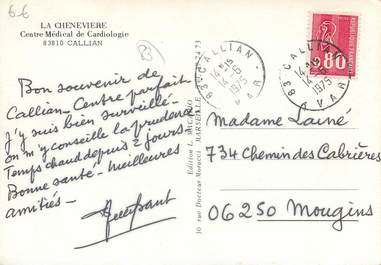 6-6
LA CHENEVIERE
Centre Médical de Cardiologie
83810 CALLIAN
83
Bon souvenir de
Callian - Centre parfait
J'y suis bien surveillé -
on m'y conseille la prudence
Temps chaud depuis 2 jours -
Bonne santé - Meilleures
amitiés -
Edition L. MACARIO
30 rue Docteur Morucci MARSEILLE
83 CALLIAN
VAR
14-5
1975
83 CALLIAN
VAR
14-5
1975
0.80
Madame Lainé
734 Chemin des Cabrières
06250 Mougins